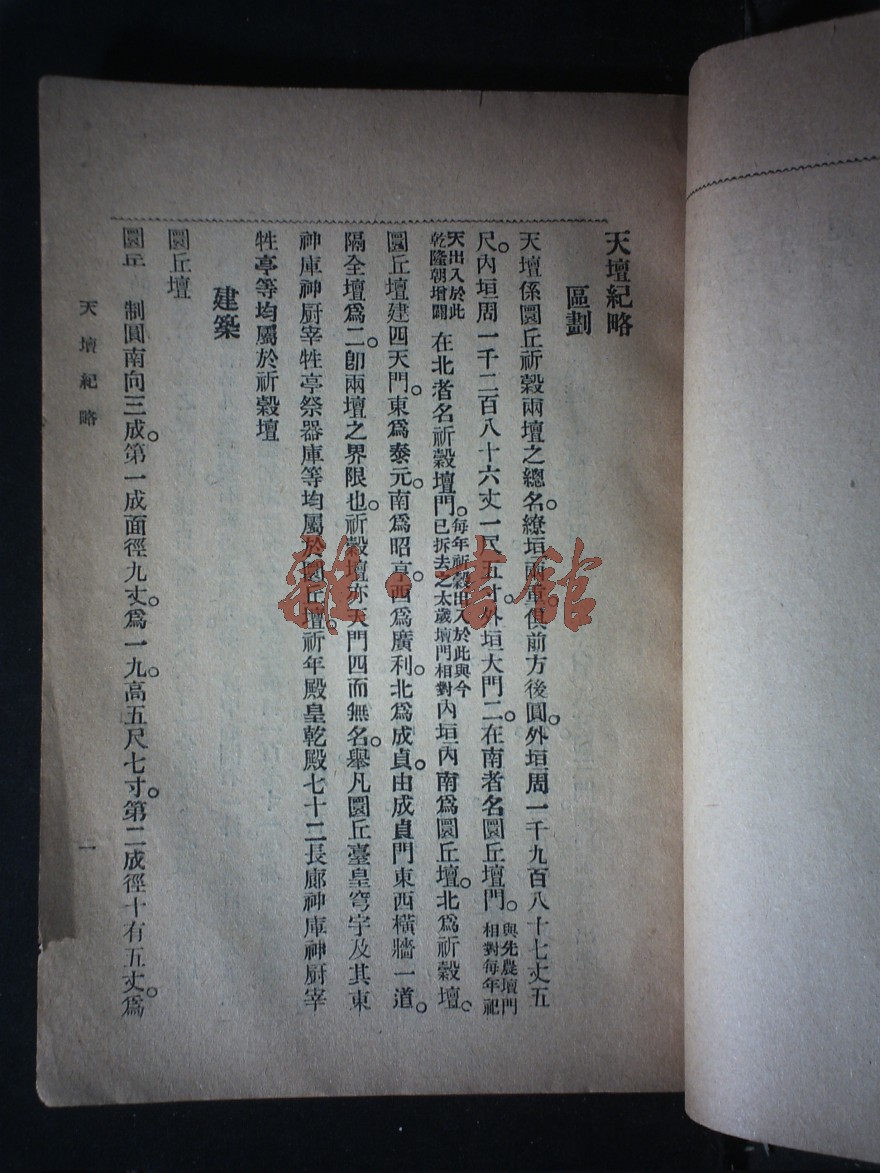 天壇紀略
區劃
天壇係圜丘祈穀兩壇之總名。繚垣兩重。俱前方後圓。外垣周一千九百八十七丈五
尺。內垣周一千二百八十六丈一尺五寸。外垣大門二。在南者名圜丘壇門。與先農壇門相對每年祀
天出入於此乾隆朝增闢在北者名祈穀壇門。每年祈穀出入於此與今已拆去之太歲壇門相對內垣內南爲圜丘壇。北爲祈穀壇。
圜丘壇建四天門。東爲泰元。南爲昭亨。西爲廣利。北爲成貞。由成貞門東西橫牆一道。
隔全壇爲二。卽兩壇之界限也。祈穀壇亦天門四而無名。舉凡圜丘臺皇穹宇及其東
神庫神厨宰牲亭祭器庫等均屬於圜丘壇。祈年殿皇乾殿七十二長廊神庫神厨宰
牲亭等均屬於祈穀壇
建築
圜丘壇
圜丘 制圓南向三成。第一成面徑九丈。爲一九。高五尺七寸。第二成徑十有五丈。爲
天壇紀略
一
雜·書館